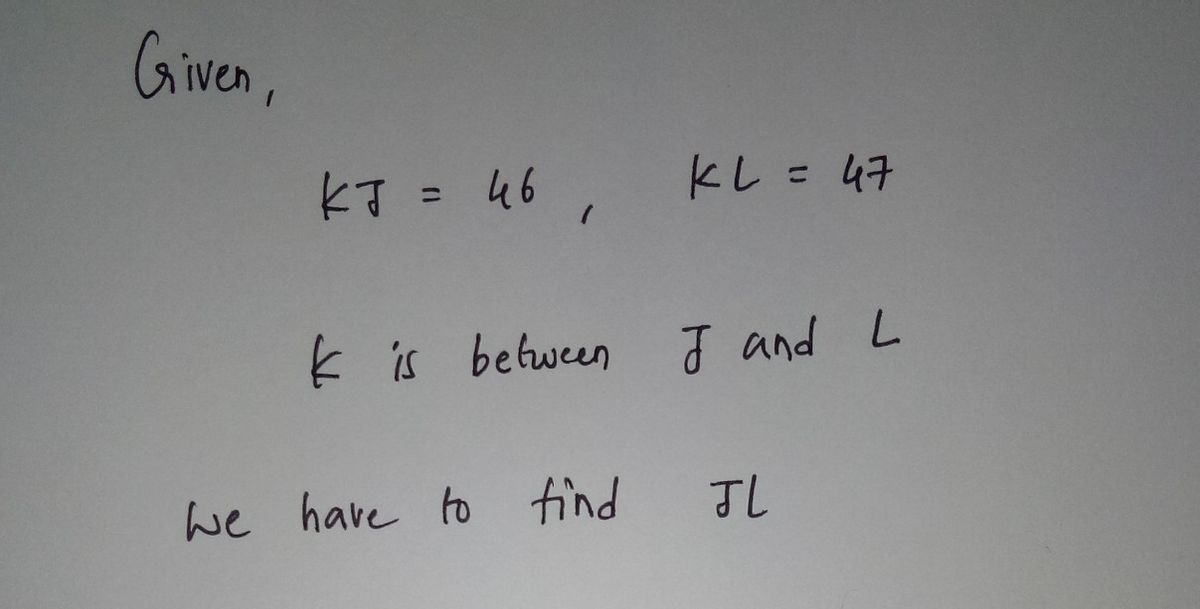 Given,
KJ = 46 , KL = 47
K is between J and L
We have to find JL